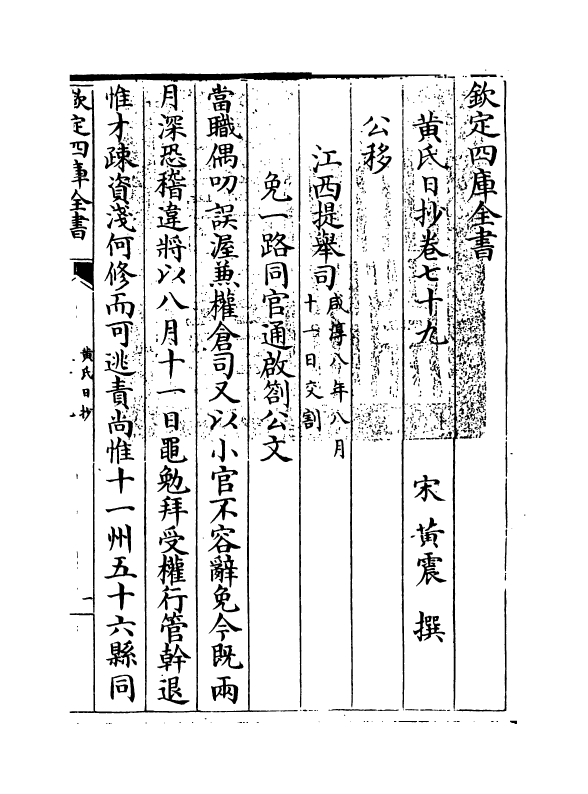 欽定四庫全書
黃氏日抄卷七十九
宋 黃震 撰
公移
江西提舉司咸淳八年八月
十一日交割
免一路同官通啟劄公文
當職偶叨誤渥兼權倉司又以小官不容辭免今既兩
月深恐稽違將以八月十一日黽勉拜受權行管幹退
惟才疎資淺何修而可逃責尚惟十一州五十六縣同
欽定四庫全書
黃氏日抄
一